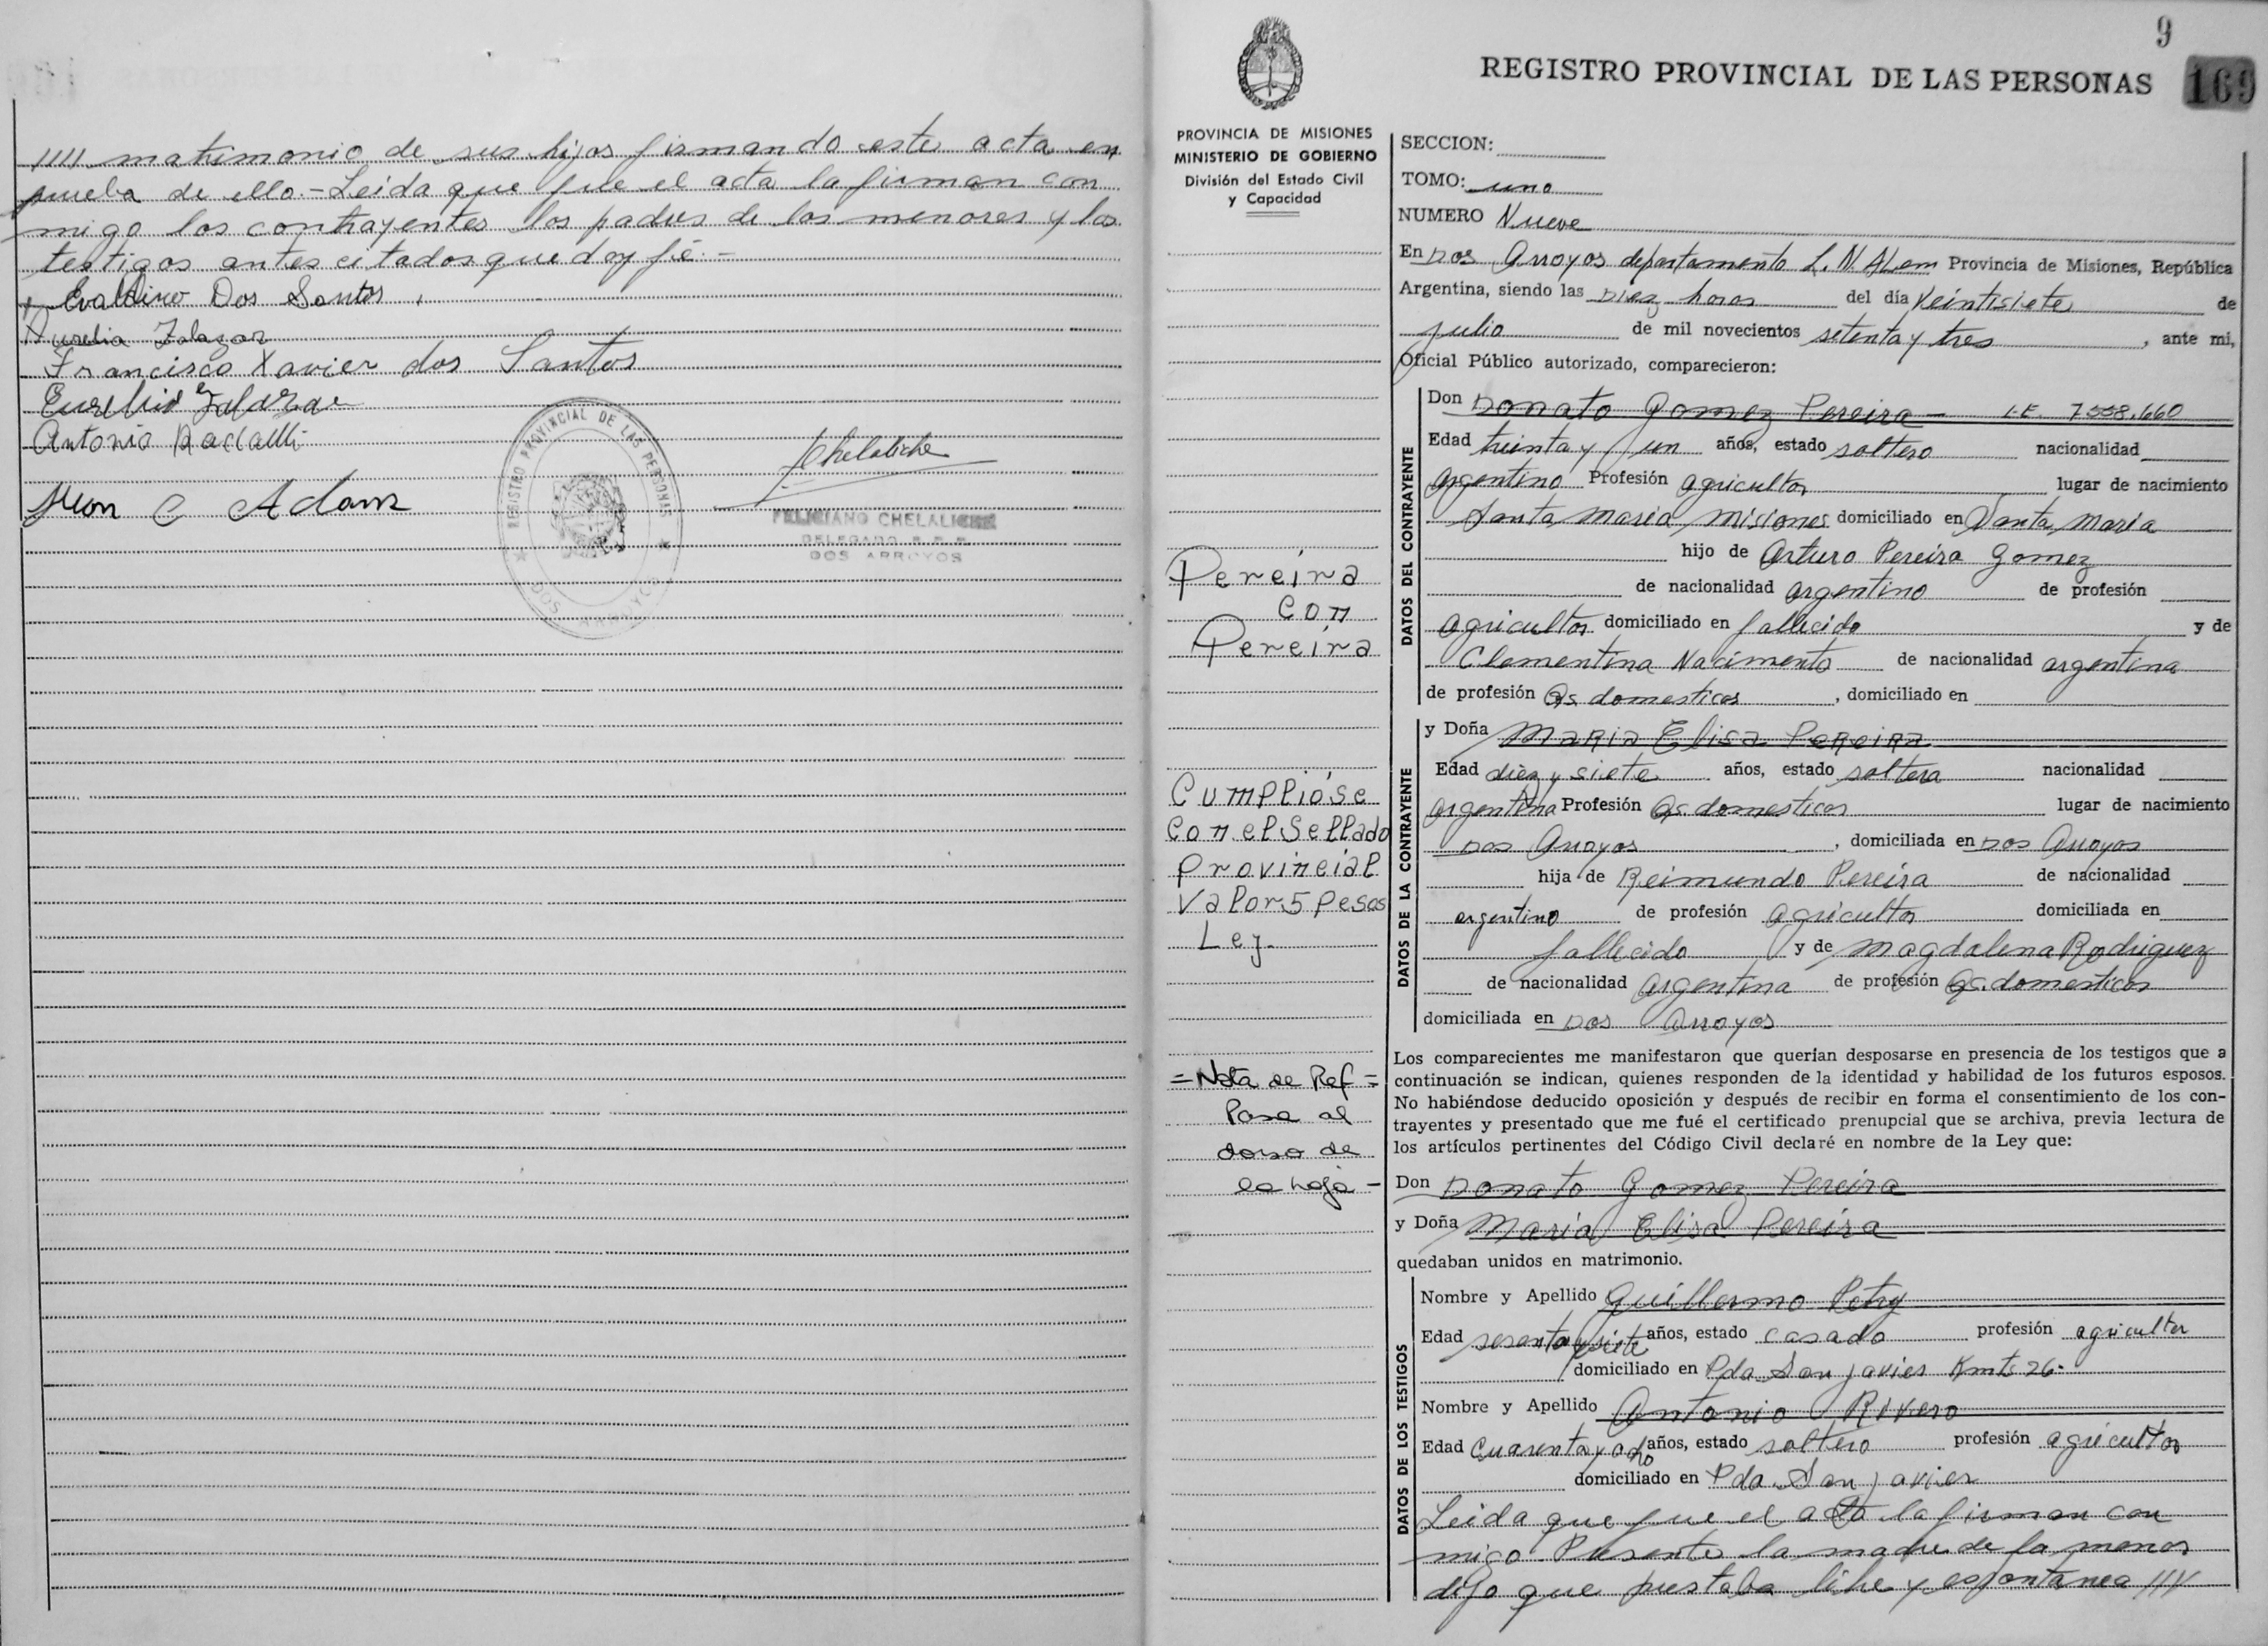 //// matrimonio de sus hijos firmando este acta en
prueba de ello.- Leida que fue el acta la firman con
migo los contrayentes los padres de los menores y los
testigos antes citados que doy fé.-
Evaldino Dos Santos
Aurelia Zalazar
Francisco Xavier dos Santos
Antonio
C Adam
REGISTRO PROVINCIAL DE LAS PERSONAS
DOS ARROYOS
Chelaliche
FELICIANO CHELALICHE
DELEGADO R.P.P.
DOS ARROYOS
9
REGISTRO PROVINCIAL DE LAS PERSONAS
169
PROVINCIA DE MISIONES
MINISTERIO DE GOBIERNO
División del Estado Civil
y Capacidad
Pereira
con
Pereira
Cumplióse
con el Sellado
Provincial
Valor 5 Pesos
Ley.
= Nota de Ref =
Pasa al
dorso de
la hoja -
SECCION:
TOMO: uno
NUMERO Nueve
En Dos Arroyos departamento L. N. ALem Provincia de Misiones, República
Argentina, siendo las Diez horas del día Veintisiete de
julio de mil novecientos setenta y tres, ante mi,
Oficial Público autorizado, comparecieron:
DATOS DEL CONTRAYENTE
Don Donato Gomez Pereira - L.E. 7.558.660
Edad treinta y un años, estado soltero nacionalidad
argentino Profesión agricultor lugar de nacimiento
Santa Maria, Misiones domiciliado en Santa Maria
hijo de Arturo Pereira Gomez
de nacionalidad argentino de profesión
agricultor domiciliado en fallecido y de
Clementina Nacimento de nacionalidad argentina
de profesión Qs. domesticos, domiciliado en
DATOS DE LA CONTRAYENTE
y Doña Maria Elisa Pereira
Edad diez y siete años, estado soltera nacionalidad
argentina Profesión Qs. domesticos lugar de nacimiento
Dos Arroyos, domiciliada en Dos Arroyos
hija de Reimundo Pereira de nacionalidad
argentino de profesión agricultor domiciliada en
fallecido y de Magdalena Rodriguez
de nacionalidad argentina de profesión Qs. domesticos
domiciliada en Dos Arroyos
Los comparecientes me manifestaron que querían desposarse en presencia de los testigos que a
continuación se indican, quienes responden de la identidad y habilidad de los futuros esposos.
No habiéndose deducido oposición y después de recibir en forma el consentimiento de los con-
trayentes y presentado que me fué el certificado prenupcial que se archiva, previa lectura de
los artículos pertinentes del Código Civil declaré en nombre de la Ley que:
Don Donato Gomez Pereira
y Doña Maria Elisa Pereira
quedaban unidos en matrimonio.
DATOS DE LOS TESTIGOS
Nombre y Apellido Guillermo Petry
Edad sesenta y siete años, estado casado profesión agricultor
domiciliado en Pda San Javier Kmts 26-
Nombre y Apellido Antonio Rivero
Edad cuarenta y ocho años, estado soltero profesión agricultor
domiciliado en Pda San Javier
Leida que fue el acta la firman con
migo. Presente la madre de la menor
dijo que prestaba libre y espontanea ////